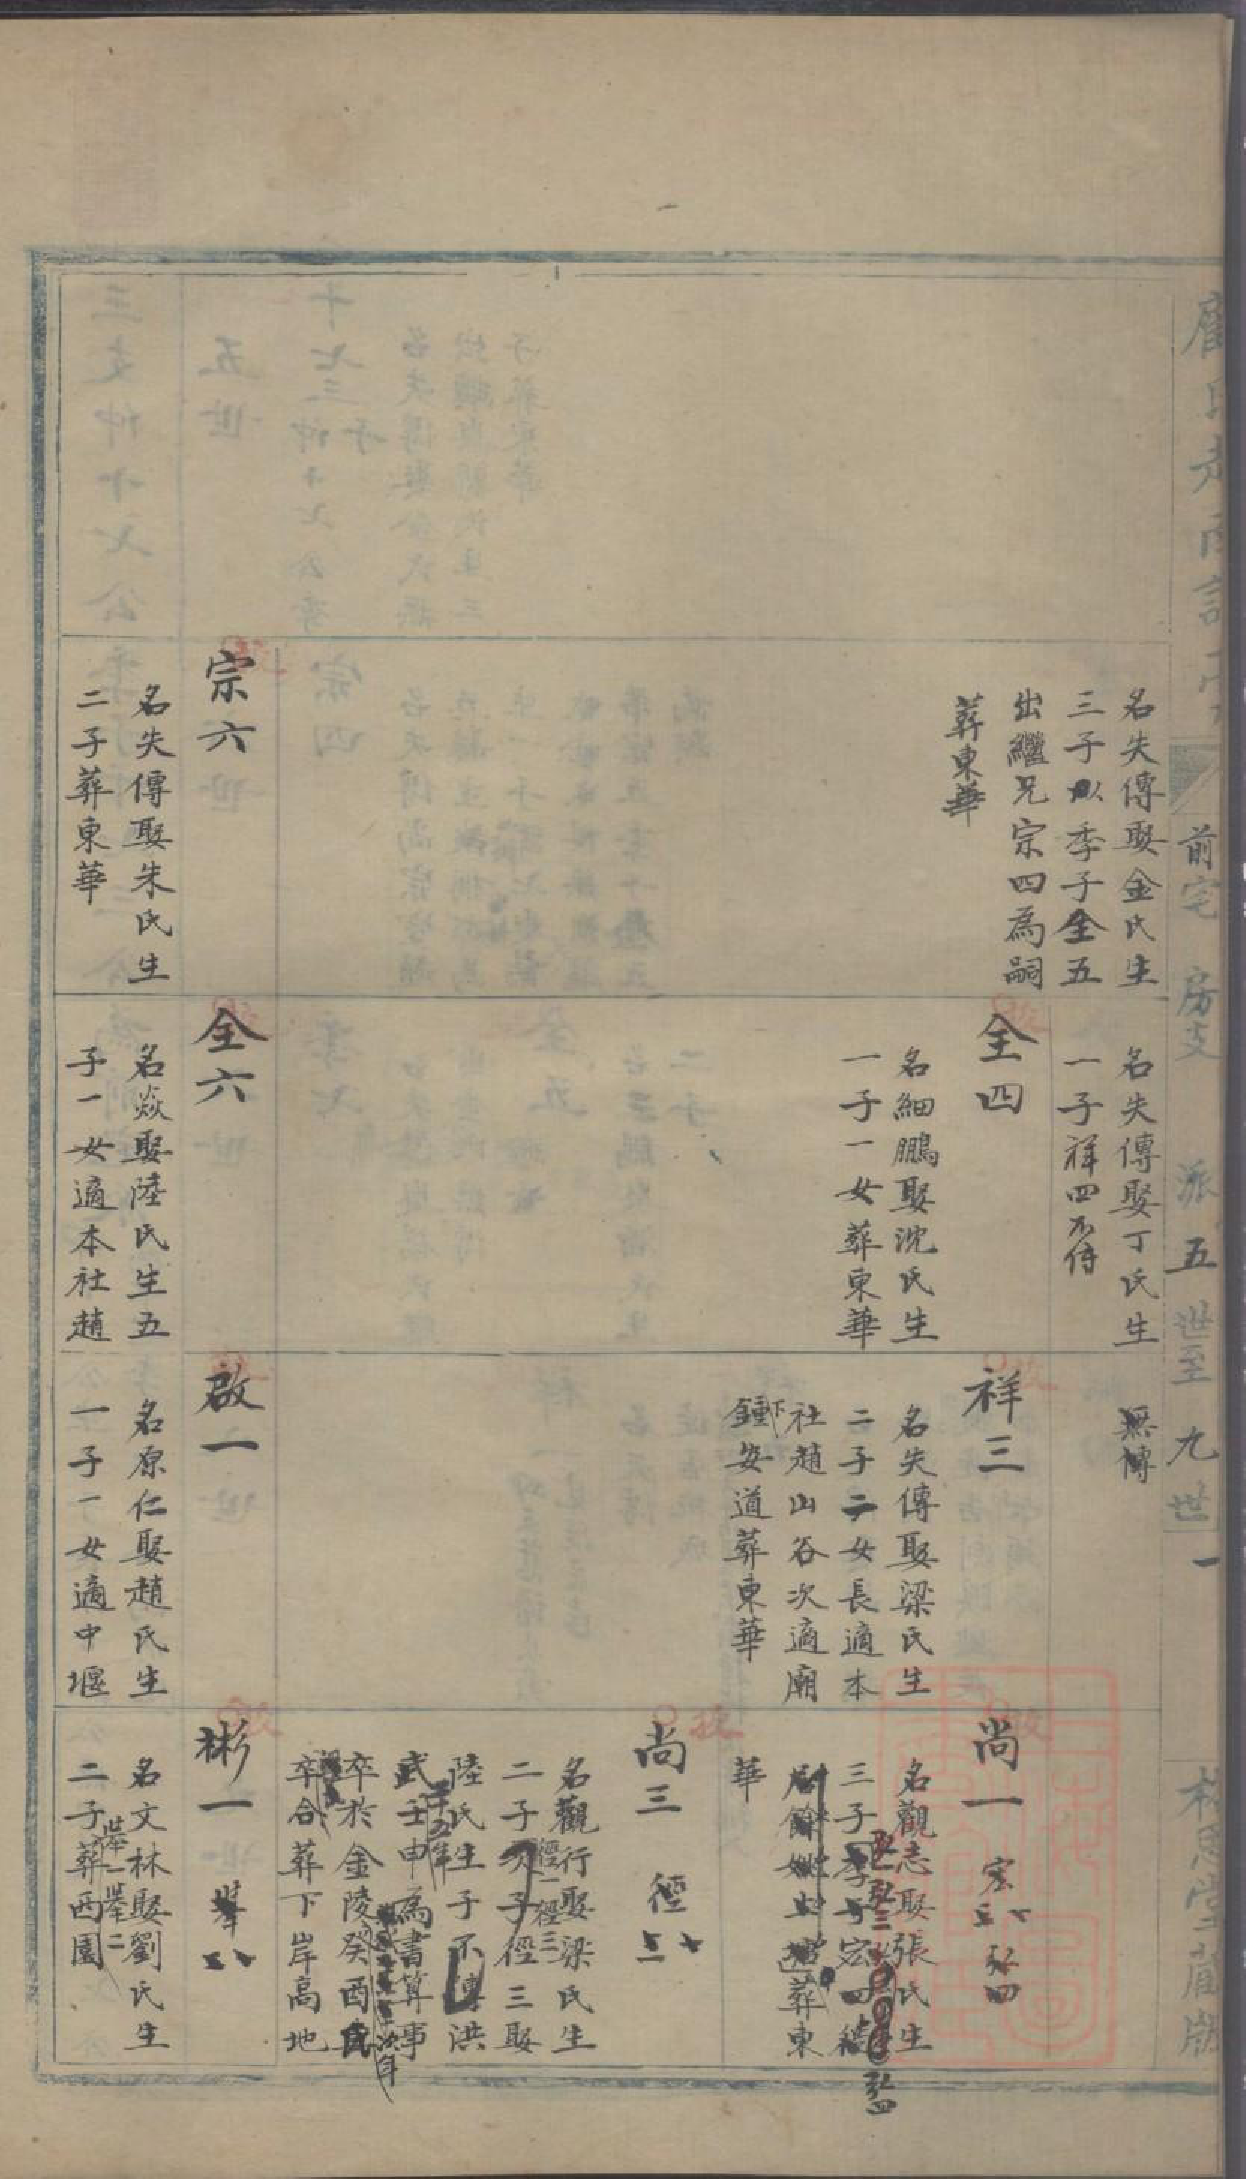 前宅
房支
派
五
世至
九
世
一
名失傳娶金氏生
三子以季子全五
出繼兄宗四為嗣
葬東華
宗六
名失傳娶朱氏生
二子葬東華
名失傳娶丁氏生
一子祥四不傳
全四
名細鵬娶沈氏生
一子一女葬東華
全六
名焱娶陸氏生五
子一女適本社趙
無傳
祥三
名失傳娶梁氏生
二子二女長適本
社趙山谷次適廟
下
鍾安道葬東華
啟一
名原仁娶趙氏生
一子一女適中堰
尚一
名觀志娶張氏生
三子
葬東
華
尚三 徑
名觀行娶梁氏生
徑一徑三
二子次子徑三娶
陸氏生子不傳洪
武壬申為書算事
二十五年
卒於金陵癸酉
卒合葬下岸高地
彬一
名文林娶劉氏生
二子葬西園